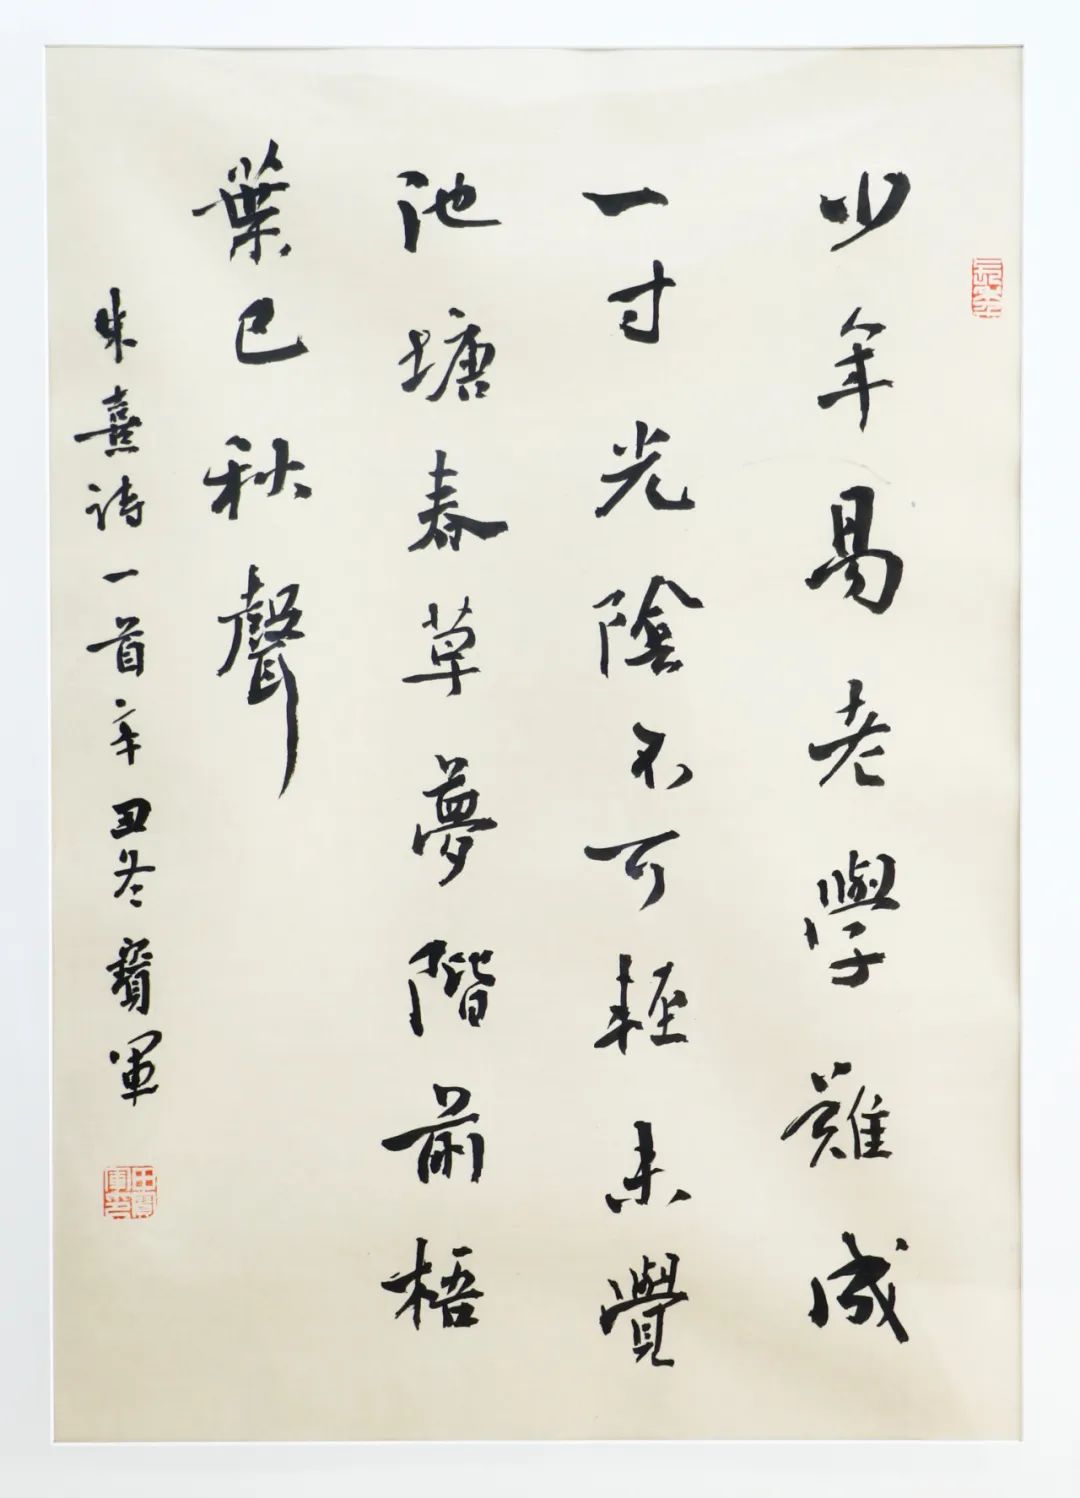 少年易老學難成
一寸光陰不可輕未覺
池塘春草夢階前梧
葉已秋聲
朱熹詩一首辛丑冬寶軍